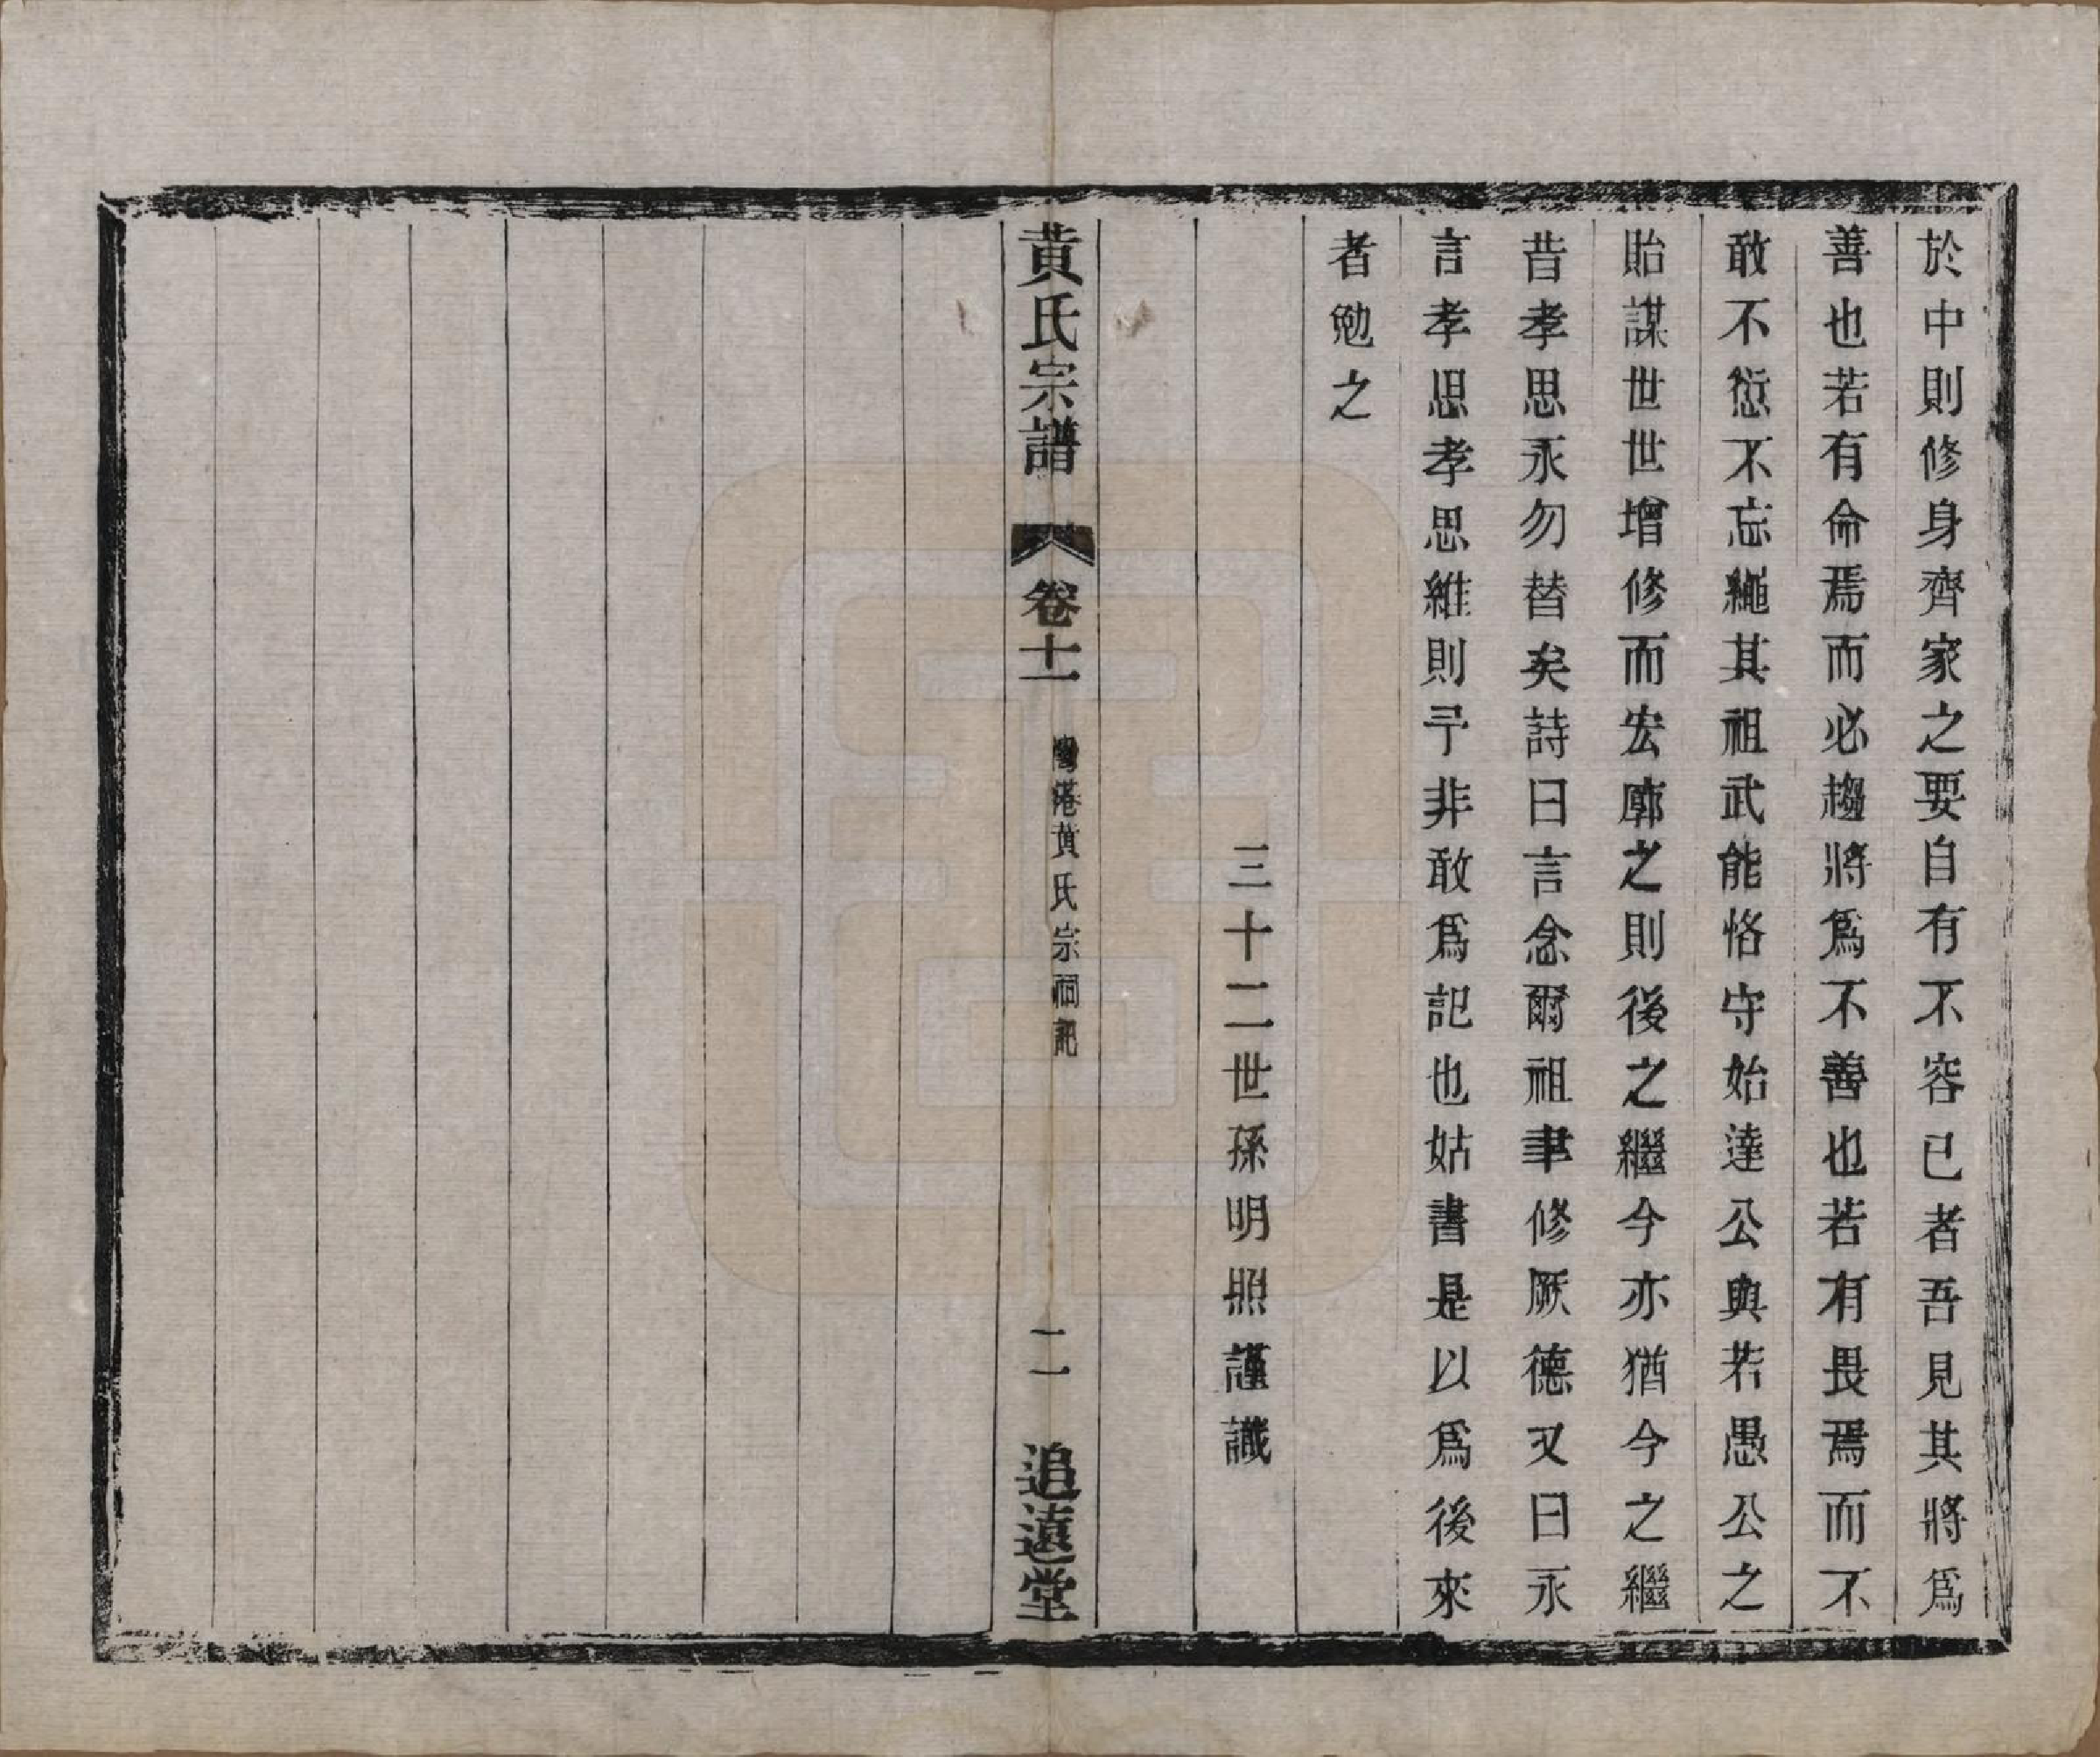 於中則修身齊家之要自有不容已者吾見其將爲
善也若有命焉而必趨將爲不善也若有畏焉而不
敢不愆不忘繩其祖武能恪守始達公與若愚公之
貽謀世世增修而宏廓之則後之繼今亦猶今之繼
昔孝思永勿替矣詩曰言念爾祖聿修厥德又曰永
言孝思孝思維則予非敢爲記也姑書是以爲後來
者勉之
三十二世孫明照謹識
黃氏宗譜
卷十一
灣港黃氏宗祠記
二
追遠堂